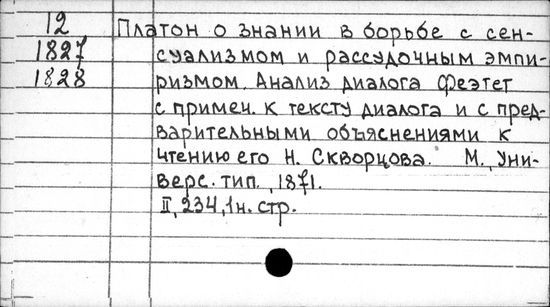 12 Платон о знании в борьбе с сен-
1827 суализмом и рассудочным эмпи-
1828 ризмом. Анализ диалога Феэтет
с примен. к тексту диалога и с пред-
варительными объяснениями к
чтению его Н. Скворцова. М., Уни-
верс. тип., 1871.
II, 234, 1н. стр.